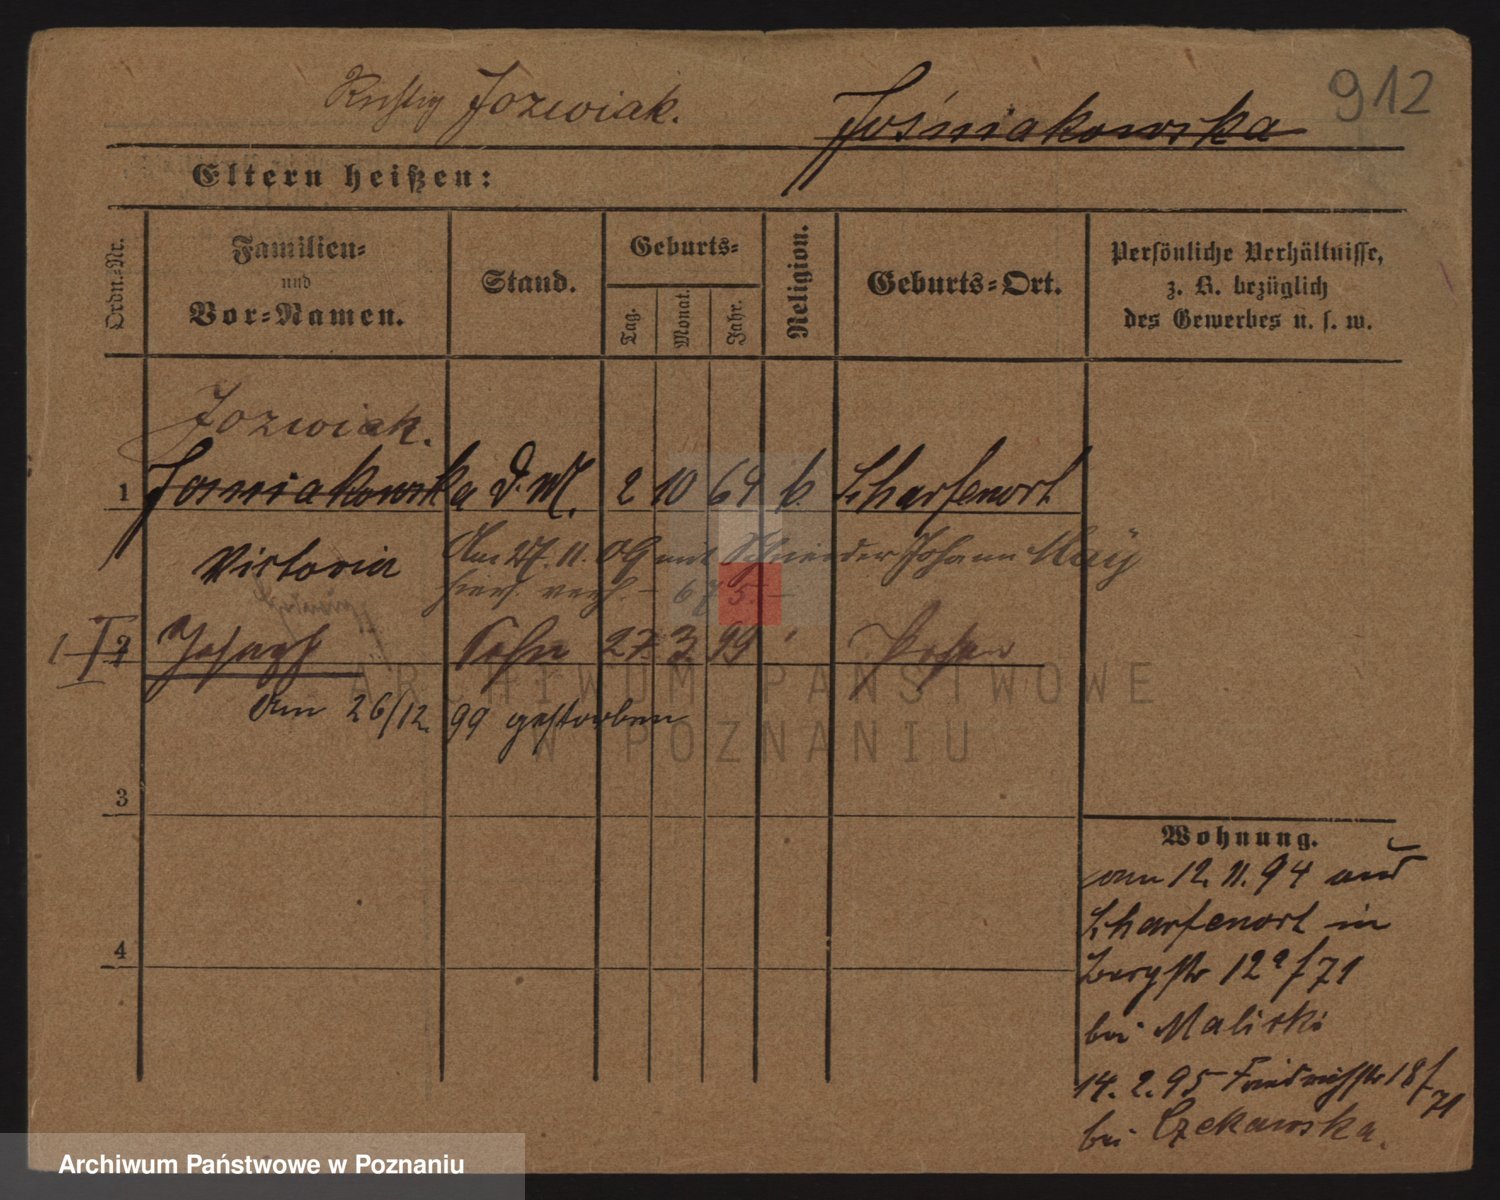 912
Richtig Jozwiak.
Jośniakowska
Eltern heißen:
Ordn.-Nr.
Familien-
und
Vor-Namen.
Stand.
Geburts-
Tag.
Monat.
Jahr.
Religion.
Geburts-Ort.
Persönliche Verhältnisse,
z. B. bezüglich
des Gewerbes u. s. w.
Jozwiak.
1 Josniakowska d. M. 2 10 69 k. Scharfenort
Victoria
Am 27. 11. 04 mit Schneider Johann May
hier verh. - 675. -
1 I 2 Joseph Sohn 27. 3. 99 Posen
Am 26/12. 99 gestorben
ARCHIWUM PAŃSTWOWE
W POZNANIU
3
4
Wohnung.
am 12. 11. 94 aus
Scharfenort in
Bergstr 12a f 71
bei Maliski
14. 2. 95 Friedrichstr 18 f
71
bei Czekawska.
Archiwum Państwowe w Poznaniu